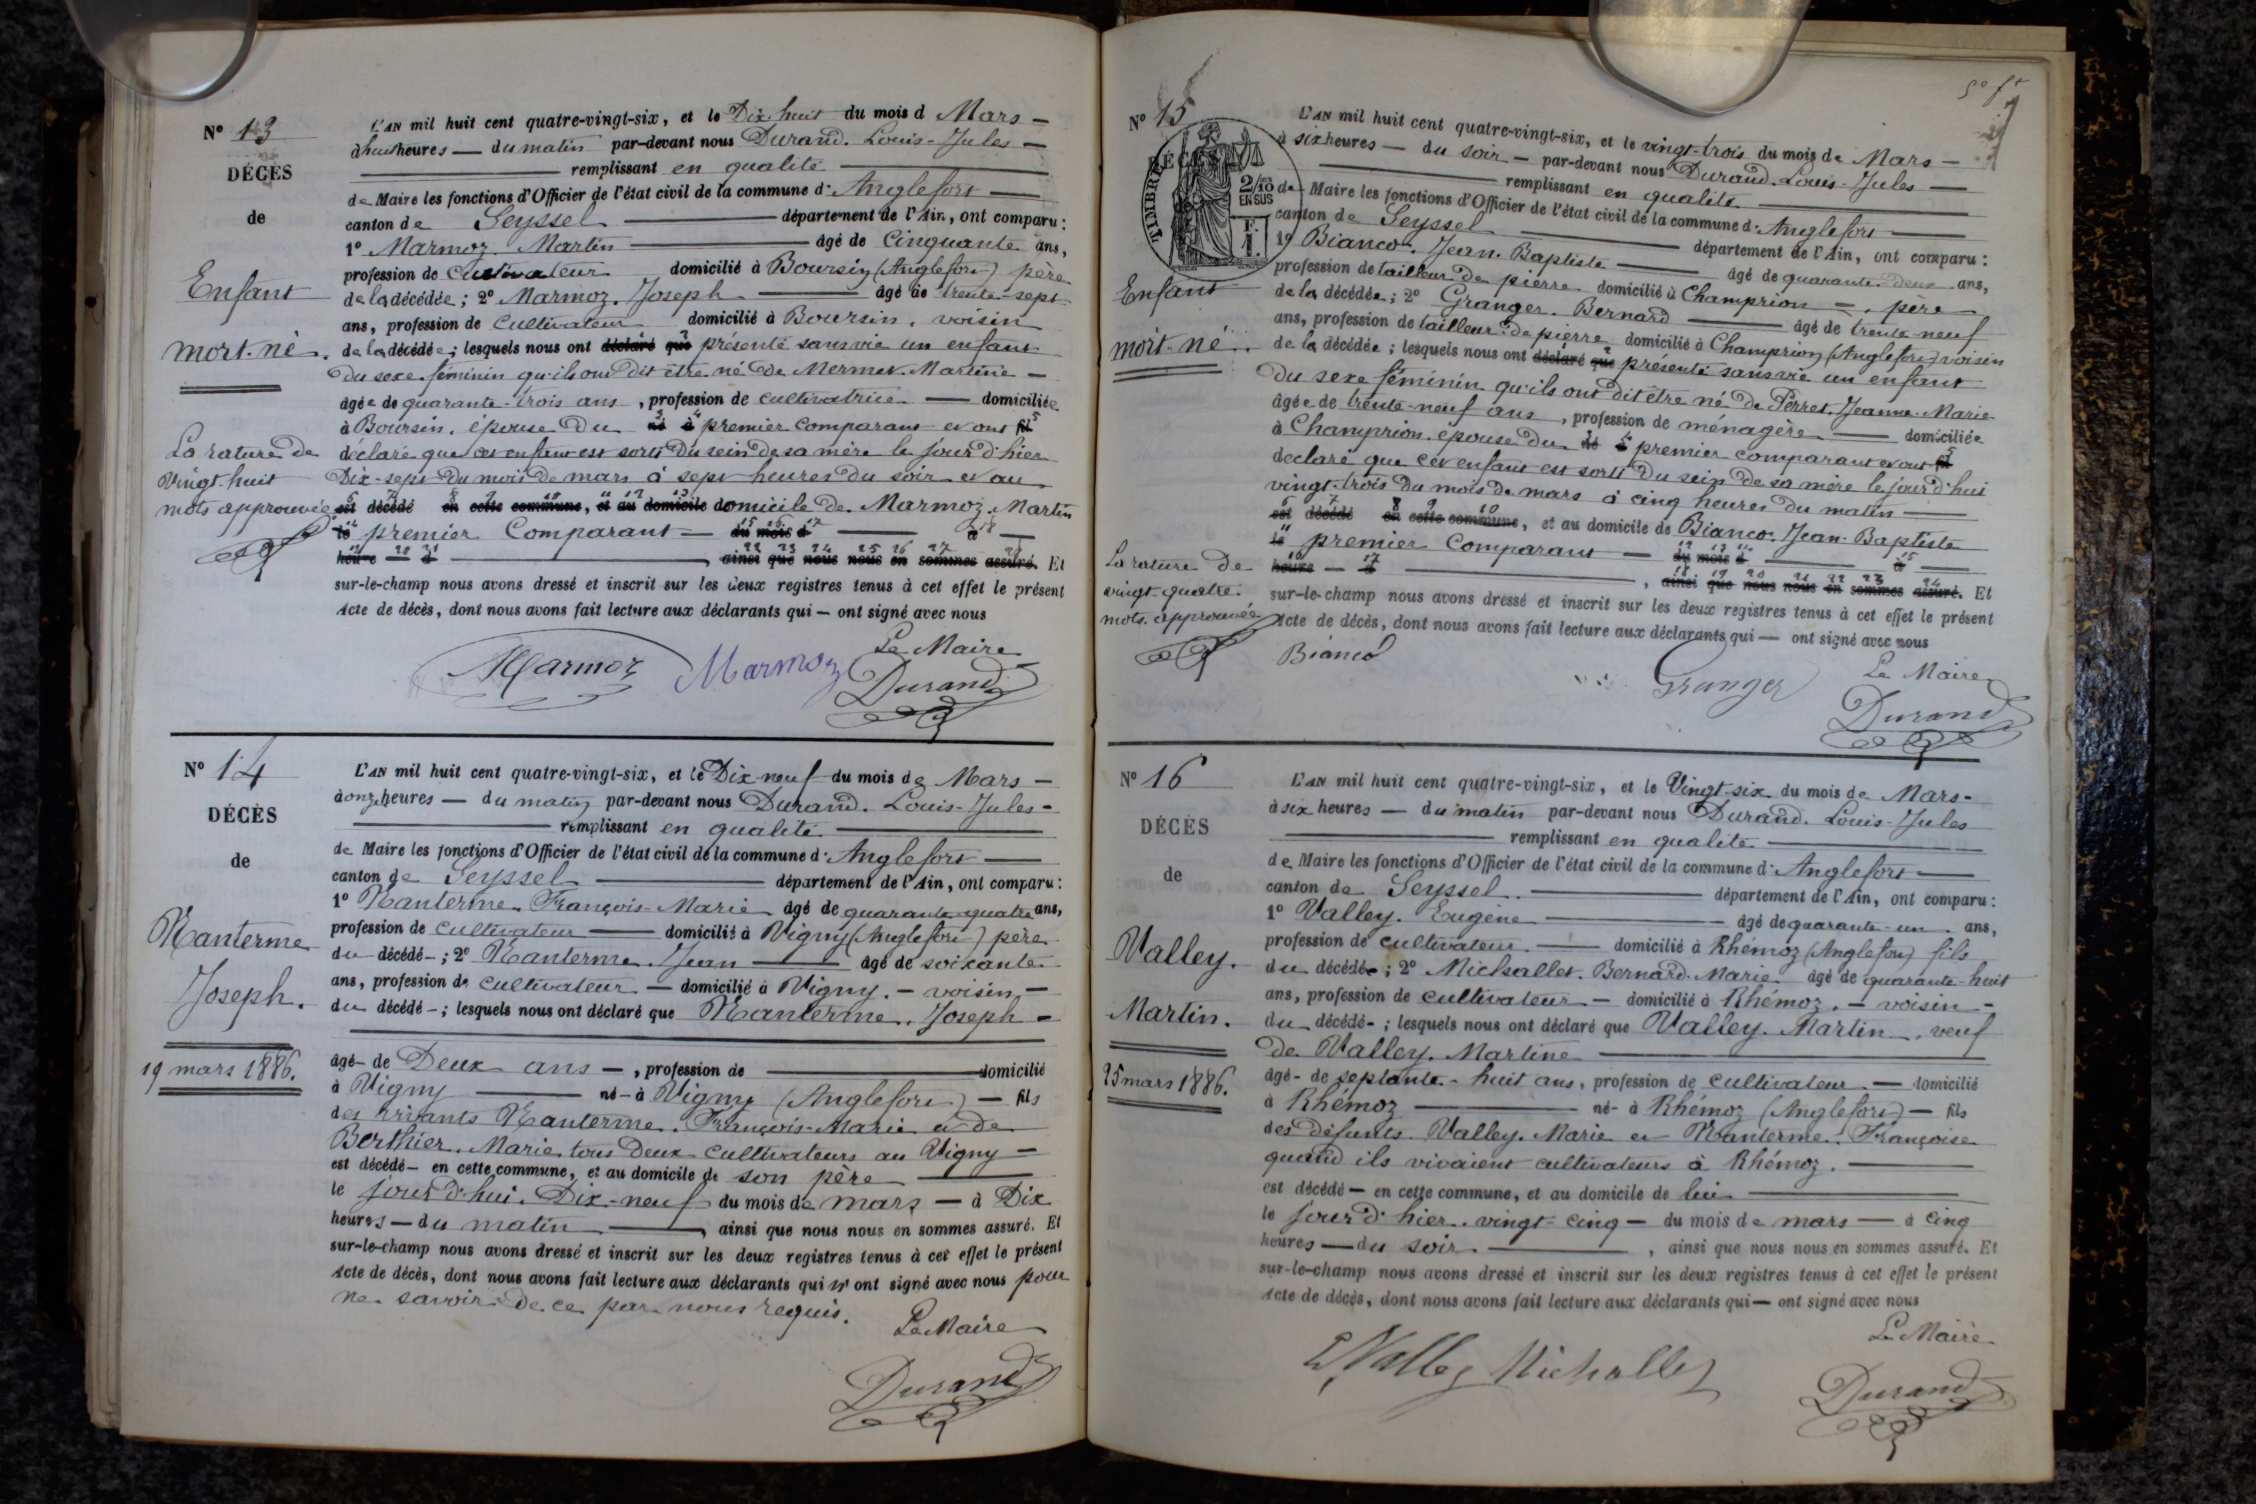 Nº 13
DÉCÈS
de
Enfant
mort-né.
La rature de
vingt-huit
mots approuvée
L'AN mil huit cent quatre-vingt-six, et le Dix huit du mois d Mars —
à huit heures — du matin par-devant nous Durand. Louis-Jules —
remplissant en qualité
de Maire les fonctions d'Officier de l'état civil de la commune d' Anglefort
canton de Seyssel département de l'Ain, ont comparu :
1º Marmoz. Martin âgé de Cinquante ans,
profession de cultivateur domicilié à Boursin (Anglefort) père
de la décédée ; 2º Marmoz. Joseph âgé de trente-sept
ans, profession de cultivateur domicilié à Boursin. voisin
de la décédée ; lesquels nous ont déclaré que présenté sans vie un enfant
du sexe féminin qu'ils ont dit être né de Mermet. Martine —
âgée de quarante-trois ans, profession de cultivatrice — domiciliée
à Boursin. épouse du né à premier comparant et ont fil
déclaré que cet enfant est sorti du sein de sa mère le jour d'hier
Dix-sept du mois de mars à sept heures du soir et au
est décédé en cette commune, et au domicile domicile de Marmoz. Martin
le premier Comparant — du mois d à
heure — d , ainsi que nous nous en sommes assuré. Et
sur-le-champ nous avons dressé et inscrit sur les deux registres tenus à cet effet le présent
Acte de décès, dont nous avons fait lecture aux déclarants qui — ont signé avec nous
Le Maire
Marmoz Marmoz Durand
Nº 14
DÉCÈS
de
Nanterme
Joseph.
19 mars 1886.
L'AN mil huit cent quatre-vingt-six, et le Dix-neuf du mois de Mars —
à onze heures — du matin par-devant nous Durand. Louis-Jules —
remplissant en qualité
de Maire les fonctions d'Officier de l'état civil de la commune d' Anglefort
canton de Seyssel département de l'Ain, ont comparu :
1º Nanterme. François-Marie âgé de quarante-quatre ans,
profession de cultivateur — domicilié à Vigny (Anglefort) père
du décédé - ; 2º Nanterme. Jean âgé de soixante
ans, profession de cultivateur — domicilié à Vigny. — voisin —
du décédé - ; lesquels nous ont déclaré que Nanterme. Joseph —
âgé - de Deux ans —, profession de domicilié
à Vigny né - à Vigny (Anglefort) — fils
des vivants Nanterme. François-Marie et de
Berthier. Marie tous deux cultivateurs au Vigny —
est décédé - en cette commune, et au domicile de son père
le jour d'hui. Dix-neuf du mois de mars — à Dix
heures — du matin , ainsi que nous nous en sommes assuré. Et
sur-le-champ nous avons dressé et inscrit sur les deux registres tenus à cet effet le présent
Acte de décès, dont nous avons fait lecture aux déclarants qui n'ont signé avec nous pour
ne savoir de ce par nous requis.
Le Maire
Durand
Nº 15
TIMBRE
2/10 EN SUS
F. 1.
Enfant
mort-né.
La rature de
vingt-quatre
mots approuvée
L'AN mil huit cent quatre-vingt-six, et le vingt-trois du mois de Mars —
à six heures — du soir — par-devant nous Durand. Louis-Jules —
remplissant en qualité
de Maire les fonctions d'Officier de l'état civil de la commune d' Anglefort
canton de Seyssel département de l'Ain, ont comparu :
1º Bianco. Jean-Baptiste âgé de quarante-deux ans,
profession de tailleur de pierre domicilié à Champrion —, père
de la décédée ; 2º Granger. Bernard âgé de trente neuf
ans, profession de tailleur de pierre domicilié à Champrion (Anglefort) voisin
de la décédée ; lesquels nous ont déclaré que présenté sans vie un enfant
du sexe féminin qu'ils ont dit être né de Perret. Jeanne-Marie
âgée de trente-neuf ans, profession de ménagère domiciliée
à Champrion. épouse du né à premier comparant et ont fil
declaré que cet enfant est sorti du sein de sa mère le jour d'hui
vingt-trois du mois de mars à cinq heures du matin
est décédé en cette commune, et au domicile de Bianco. Jean-Baptiste
le premier comparant — du mois d à
heure — d , ainsi que nous nous en sommes assuré. Et
sur-le-champ nous avons dressé et inscrit sur les deux registres tenus à cet effet le présent
Acte de décès, dont nous avons fait lecture aux déclarants qui — ont signé avec nous
Le Maire
Bianco Granger Durand
Nº 16
DÉCÈS
de
Valley.
Martin.
25 mars 1886.
L'AN mil huit cent quatre-vingt-six, et le Vingt-six du mois de Mars —
à six heures — du matin par-devant nous Durand. Louis-Jules
remplissant en qualité
de Maire les fonctions d'Officier de l'état civil de la commune d' Anglefort
canton de Seyssel. département de l'Ain, ont comparu :
1º Valley. Eugène âgé de quarante-un ans,
profession de cultivateur. — domicilié à Rhémoz (Anglefort) fils
du décédé ; 2º Michallet. Bernard-Marie âgé de quarante-huit
ans, profession de cultivateur — domicilié à Rhémoz. — voisin —
du décédé - ; lesquels nous ont déclaré que Valley. Martin, veuf
de Valley. Martine
âgé - de septante-huit ans, profession de cultivateur — domicilié
à Rhémoz né - à Rhémoz (Anglefort) — fils
des défunts Valley. Marie et Nanterme. Françoise
quand ils vivaient cultivateurs à Rhémoz.
est décédé — en cette commune, et au domicile de lui
le jour d'hier. vingt-cinq — du mois de mars — à cinq
heures — du soir. , ainsi que nous nous en sommes assuré. Et
sur-le-champ nous avons dressé et inscrit sur les deux registres tenus à cet effet le présent
Acte de décès, dont nous avons fait lecture aux déclarants qui — ont signé avec nous
Le Maire
E Valley Michallet Durand